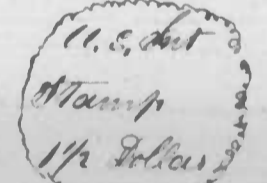 U.S. Int
Stamp
1 1/2 Dollar